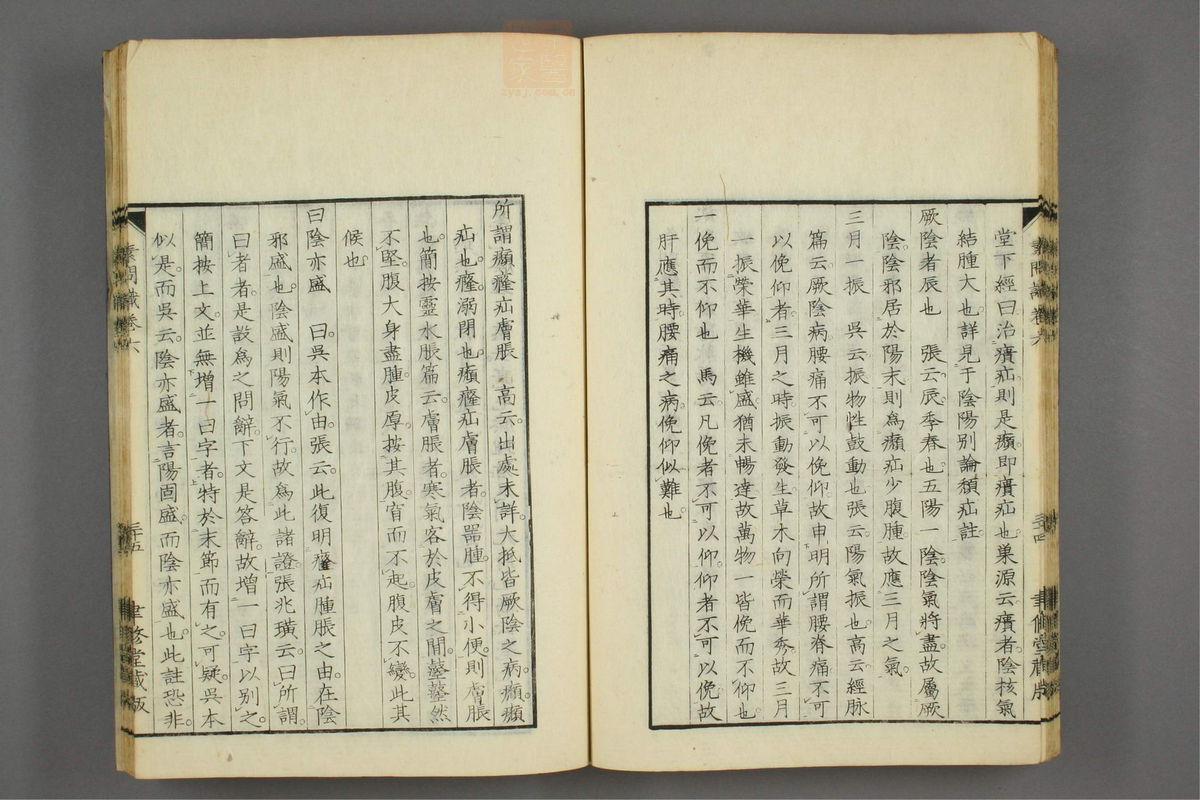 堂下經曰治㿉疝則是㿗即㿉疝也巢源云㿉者陰核氣
結腫大也詳見于陰陽別論㿗疝註
厥陰者辰也　張云辰季春也五陽一陰陰氣將盡故屬厥
陰陰邪居於陽末則為㿗疝少腹腫故應三月之氣
三月一振　吳云振物性鼓動也張云陽氣振也高云經脉
篇云厥陰病腰痛不可以俛仰故申明所謂腰脊痛不可
以俛仰者三月之時振動發生草木向榮而華秀故三月
一振榮華生機雖盛猶未暢達故萬物一皆俛而不仰也
一俛而不仰也　馬云凡俛者不可以仰仰者不可以俛故
肝應其時腰痛之病俛仰似難也
素問識卷六
三十四
聿修堂藏版
所謂㿗癃疝膚脹　高云出處未詳大抵皆厥陰之病㿗㿗
疝也癃溺閉也㿗癃疝膚脹者陰器腫不得小便則膚脹
也簡按靈水脹篇云膚脹者寒氣客於皮膚之間𪔣𪔣然
不堅腹大身盡腫皮厚按其腹窅而不起腹皮不變此其
候也
曰陰亦盛　曰吳本作由張云此復明㿗疝腫脹之由在陰
邪盛也陰盛則陽氣不行故為此諸證張兆璜云曰所謂
曰者者是設為之問辭下文是答辭故增一曰字以別之
簡按上文並無增一曰字者特於末節而有之可疑吳本
似是而吳云陰亦盛者言陽固盛而陰亦盛也此註恐非
素問識卷六
三十五
聿修堂藏版